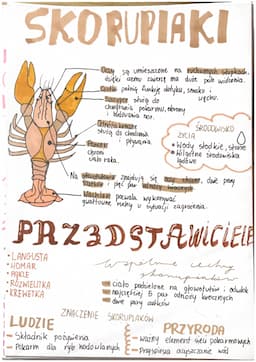 SKORUPIAKI
Oczy są umieszczone na ruchomych słupkach,
dzięki czemu zwierzę ma duże pole widzenia.
Czułki pełnią funkcję dotyku, smaku i
węchu.
Szczypce służą do
chwytania pokarmu, obrony
i kopania nor.
służą do chodzenia
i pływania.
Pancerz
chroni
ciało raka.
ŚRODOWISKO
ŻYCIA
• Wody słodkie, słone
• Wilgotne środowiska
lądowe
Na znajdują się dwie
i pięć par
pozwala wykonywać
gwałtowne ruchy w sytuacji zagrożenia.
PRZEDSTAWICIELE
• LANGUSTA
• HOMAR
• PĄKLE
• ROZWIELITKA
• KREWETKA
Wspólne cechy
skorupiaków
ciało podzielone na głowotułów i odwłok
najczęściej 5 par odnóży krocznych
dwie pary czułków
ZNACZENIE SKORUPIAKÓW
LUDZIE
– Składnik pożywienia
– Pokarm dla ryb hodowlanych
PRZYRODA
– ważny element sieci pokarmowych
– Przyspieszają oczyszczanie wód